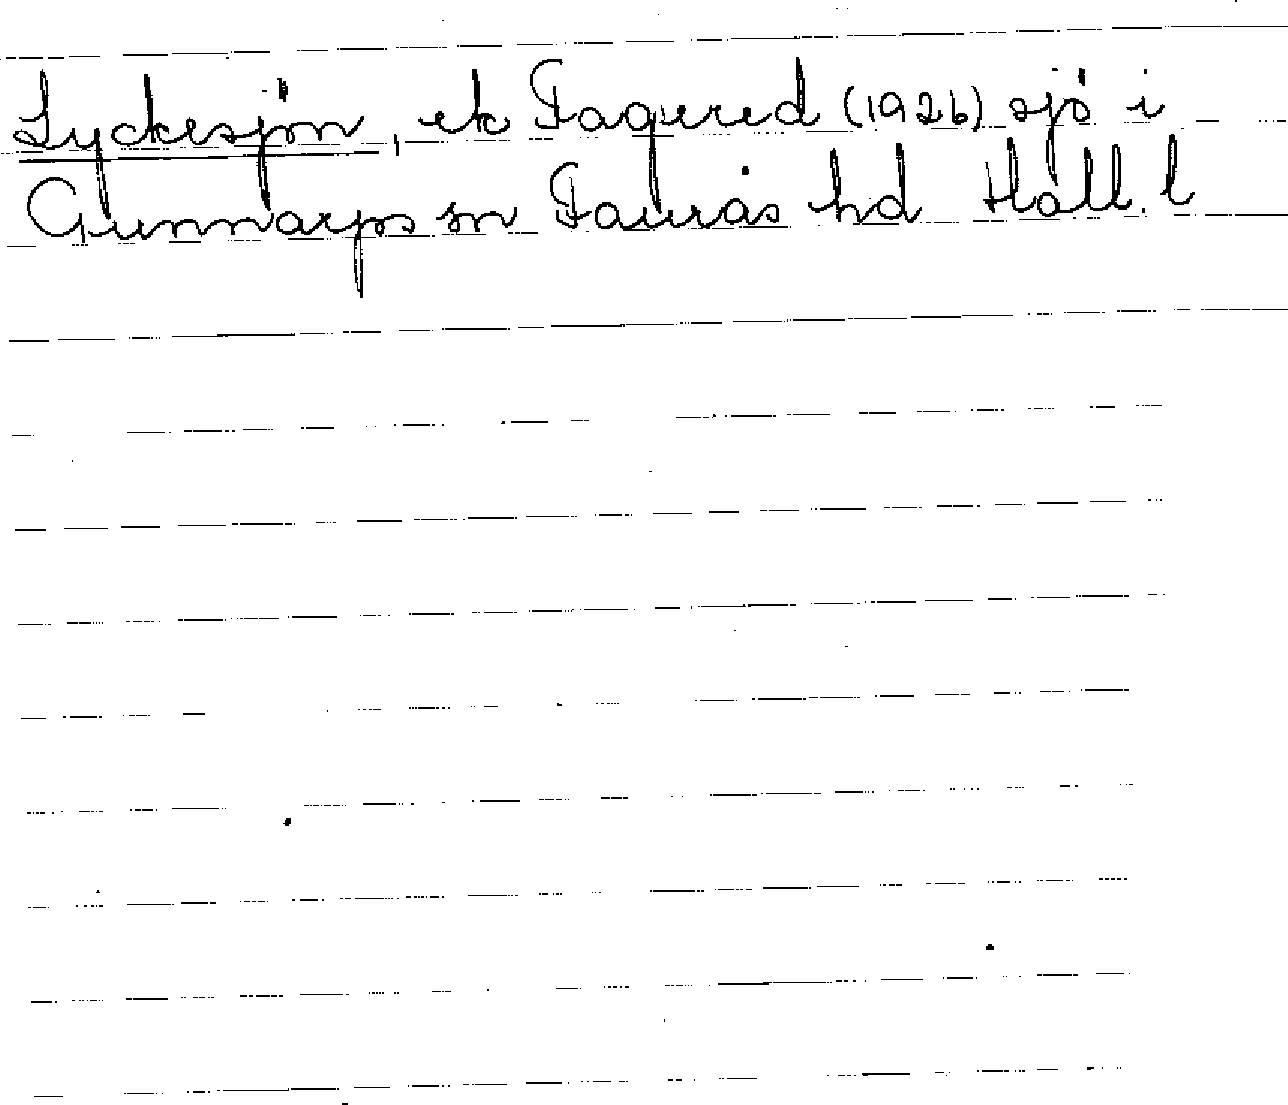 Lyckesjön, ek Fagered (1926) sjö i
Gunnarps sn Faurås hd Hall. l